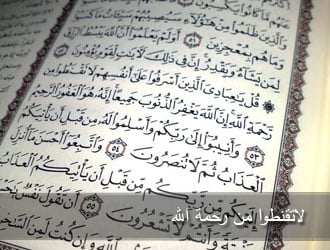 عنهم ما كانوا يكسبون
والذين ظلموا من هؤلاء سيصيبهم سيئات ما كسبوا
وما هم بمعجزين ٥١ أولم يعلموا أن الله يبسط الرزق
لمن يشاء ويقدر إن في ذلك لآيات لقوم يؤمنون ٥٢
قل يعبادي الذين أسرفوا على أنفسهم لا تقنطوا من
رحمة الله إن الله يغفر الذنوب جميعا إنه هو الغفور الرحيم
٥٣ وأنيبوا إلى ربكم وأسلموا له من قبل أن يأتيكم
العذاب ثم لا تنصرون ٥٤ واتبعوا أحسن ما أنزل
إليكم من ربكم من قبل أن يأتيكم العذاب
بغتة وأنتم لا تشعرون ٥٥ أن تقول نفس
الله وإن كنت لمن الساخرين
لاتقنطوا من رحمة الله